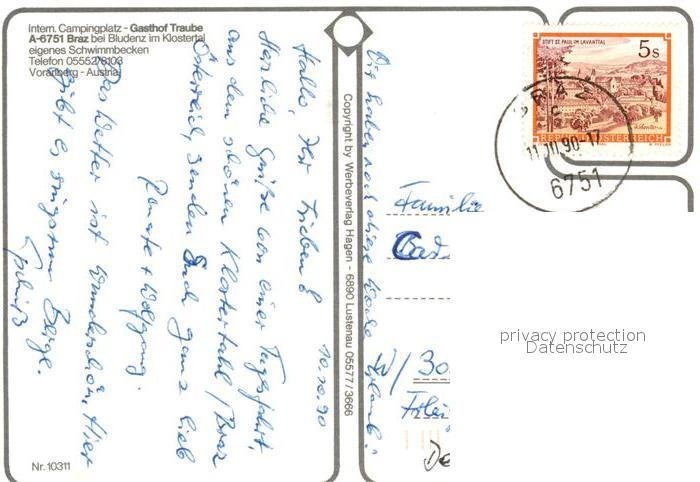 Intern. Campingplatz - Gasthof Traube
A-6751 Braz bei Bludenz im Klostertal
eigenes Schwimmbecken
Telefon 05552/8103
Vorarlberg - Austria
10.10.90
Hallo, Ihr Lieben
Herzliche Grüße von einer Tagesfahrt
aus dem schönen Klostertal/Braz
Österreich, senden Euch ganz lieb
Renate + Wolfgang.
Das Wetter ist wunderschön. Hier
gibt es Berge.
Wir haben noch diese Woche Urlaub.
Copyright by Werbeverlag Hagen - 6890 Lustenau 05577/3666
STIFT ST. PAUL IM LAVANTTAL
5s
REPUBLIK ÖSTERREICH
BRAZ
90-17
6751
Familie
Bad
W/ 30
privacy protection
Datenschutz
Nr. 10311